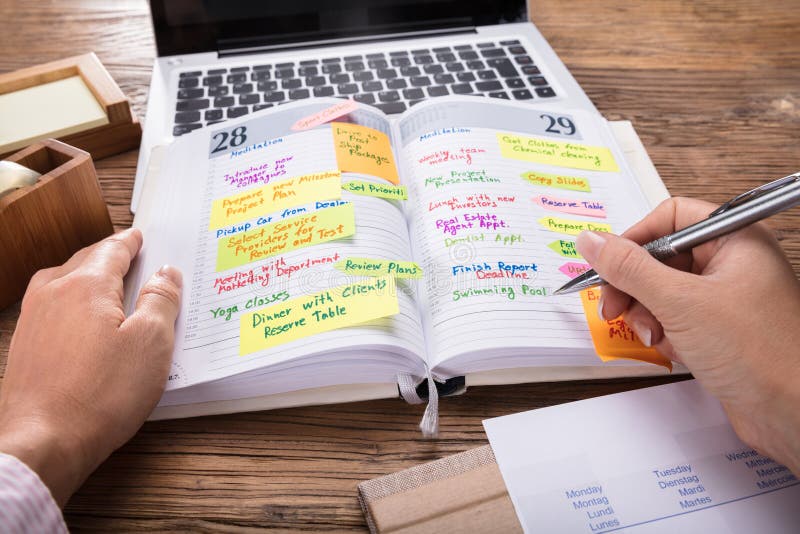 28
Meditation
Sport Classes
Drive to
Post
Ship
Packages
Introduce new
Manager to
colleagues
Prepare new Milestone
Project Plan
Set Priorities
Pickup Car from Dealer
Select Service
Providers for
Review and Test
Meeting with
Marketing Department
Review Plans
Yoga Classes
Dinner with Clients
Reserve Table
29
Meditation
Weekly team
meeting
Get Clothes from
Chemical cleaning
New Project
Presentation
Copy Slides
Lunch with new
Investors
Reserve Table
Real Estate
Agent Appt.
Prepare Docs
Dentist Appt.
Follow
Finish Report
Deadline
Swimming Pool
Milk
Monday
Montag
Lundi
Lunes
Tuesday
Dienstag
Mardi
Martes
Wedne
Mittwo
Mercre
Miércole
dreamstime